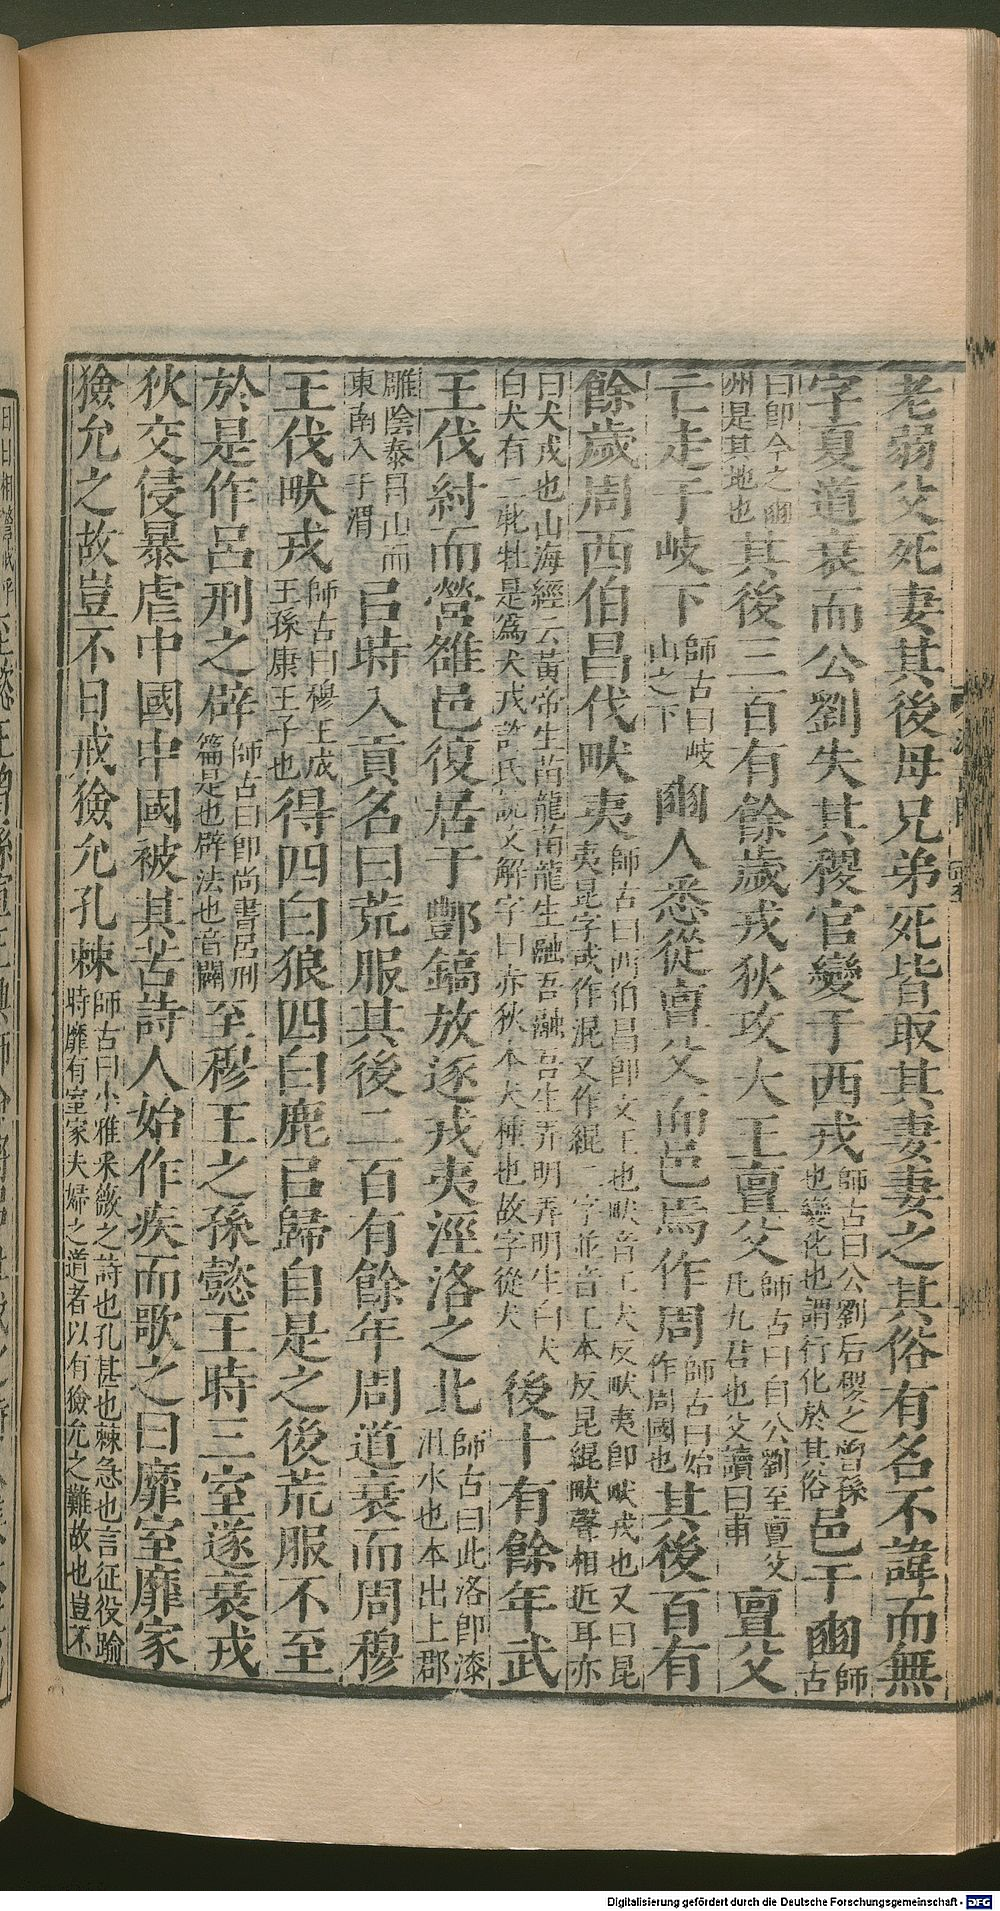 老弱父死妻其後母兄弟死皆取其妻妻之其俗有名不諱而無
字夏道衰而公劉失其稷官變于西戎師古曰公劉后稷之曾孫也變化也謂行化於其俗邑于豳師古
曰卽今之豳州是其地也其後三百有餘歲戎狄攻大王亶父師古曰自公劉至亶父凡九君也父讀曰甫亶父
亡走于岐下師古曰岐山之下豳人悉從亶父而邑焉作周師古曰始作周國也其後百有
餘歲周西伯昌伐畎夷師古曰西伯昌卽文王也畎音工犬反畎夷卽畎戎也又曰昆夷昆字或作混又作緄二字並音工本反昆緄畎聲相近耳亦
曰犬戎也山海經云黃帝生苗龍苗龍生融吾融吾生弄明弄明生白犬白犬有二牝牡是爲犬戎許氏說文解字曰赤狄本犬種也故字從犬後十有餘年武
王伐紂而營雒邑復居于酆鎬放逐戎夷涇洛之北師古曰此洛卽漆沮水也本出上郡
雕陰泰冒山而東南入于渭㠯時入貢名曰荒服其後二百有餘年周道衰而周穆
王伐畎戎師古曰穆王成王孫康王子也得四白狼四白鹿㠯歸自是之後荒服不至
於是作呂刑之辟師古曰卽尚書呂刑篇是也辟法也音闢至穆王之孫懿王時王室遂衰戎
狄交侵暴虐中國中國被其苦詩人始作疾而歌之曰靡室靡家
獫允之故豈不日戒獫允孔棘師古曰小雅采薇之詩也孔甚也棘急也言征役踰時靡有室家夫婦之道者以有獫允之難故也豈不
Digitalisierung gefördert durch die Deutsche Forschungsgemeinschaft - DFG